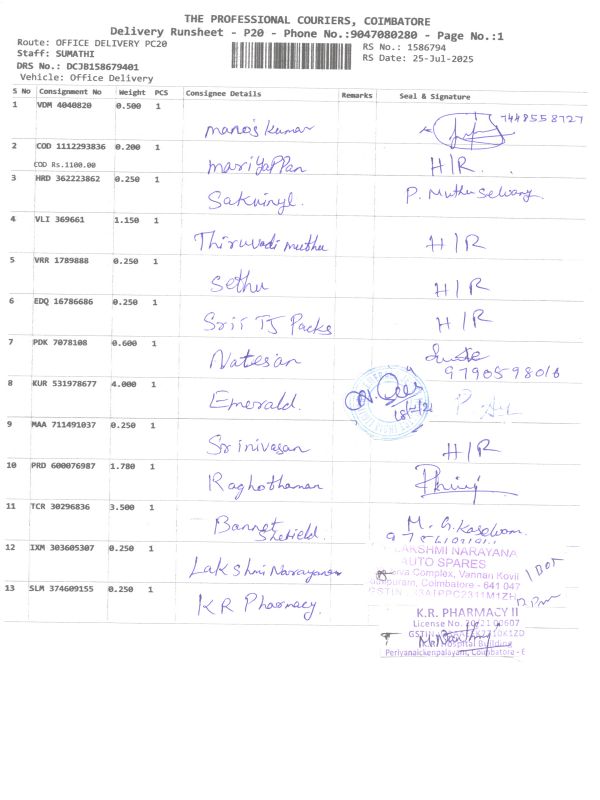 THE PROFESSIONAL COURIERS, COIMBATORE
Delivery Runsheet - P20 - Phone No.:9047080280 - Page No.:1
Route: OFFICE DELIVERY PC20
RS No.: 1586794
Staff: SUMATHI
RS Date: 25-Jul-2025
DRS No.: DCJB158679401
Vehicle: Office Delivery
S No Consignment No Weight PCS Consignee Details Remarks Seal & Signature
1 VDM 4040820 0.500 1 manojkumar 7448558727
2 COD 1112293836 0.200 1 mariyappan H/R.
COD Rs.1100.00
3 HRD 362223862 0.250 1 Sakvinyl. P. Muthu Selvang.
4 VLI 369661 1.150 1 Thiruvadi muthu H/R
5 VRR 1789888 0.250 1 Sethu H/R
6 EDQ 16786686 0.250 1 Srii TJ Packs H/R
7 PDK 7078108 0.600 1 Natesan
9790598016
8 KUR 531978677 4.000 1 Emerald.
9 MAA 711491037 0.250 1 Srinivasan H/R
10 PRD 600076987 1.780 1 Raghothaman
11 TCR 30296836 3.500 1 Bannet Shefield. M. G.
12 IXM 303605307 0.250 1 Lakshmi Narayanan
LAKSHMI NARAYANA
AUTO SPARES
Complex, Vannan Kovil
Coimbatore - 641 047
GSTIN
1 BOT
12 Pm
13 SLM 374609155 0.250 1 KR Pharmacy.
K.R. PHARMACY II
License No. 20/21
GSTIN
K.R. Hospital Building
Periyanaickenpalayam, Coimbatore -